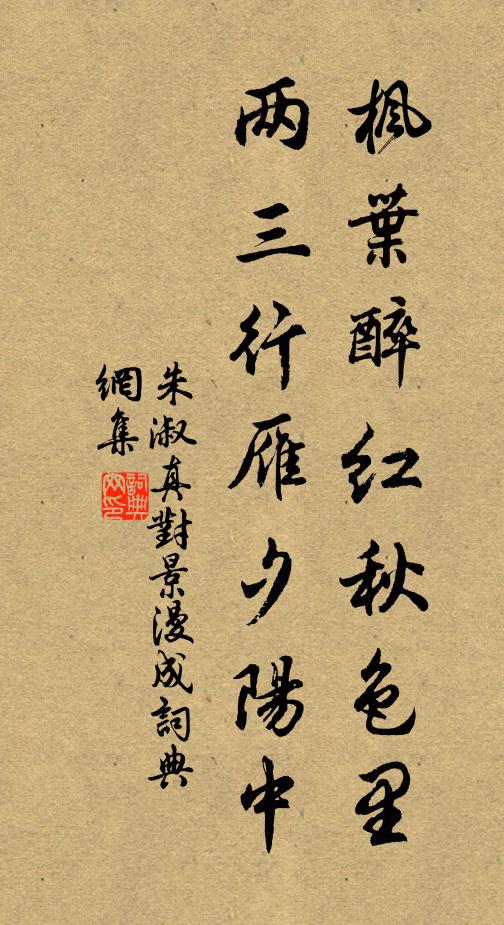 枫葉醉红秋色里
两三行雁夕陽中
朱淑真對景漫成詞典
網集
詞典
网印